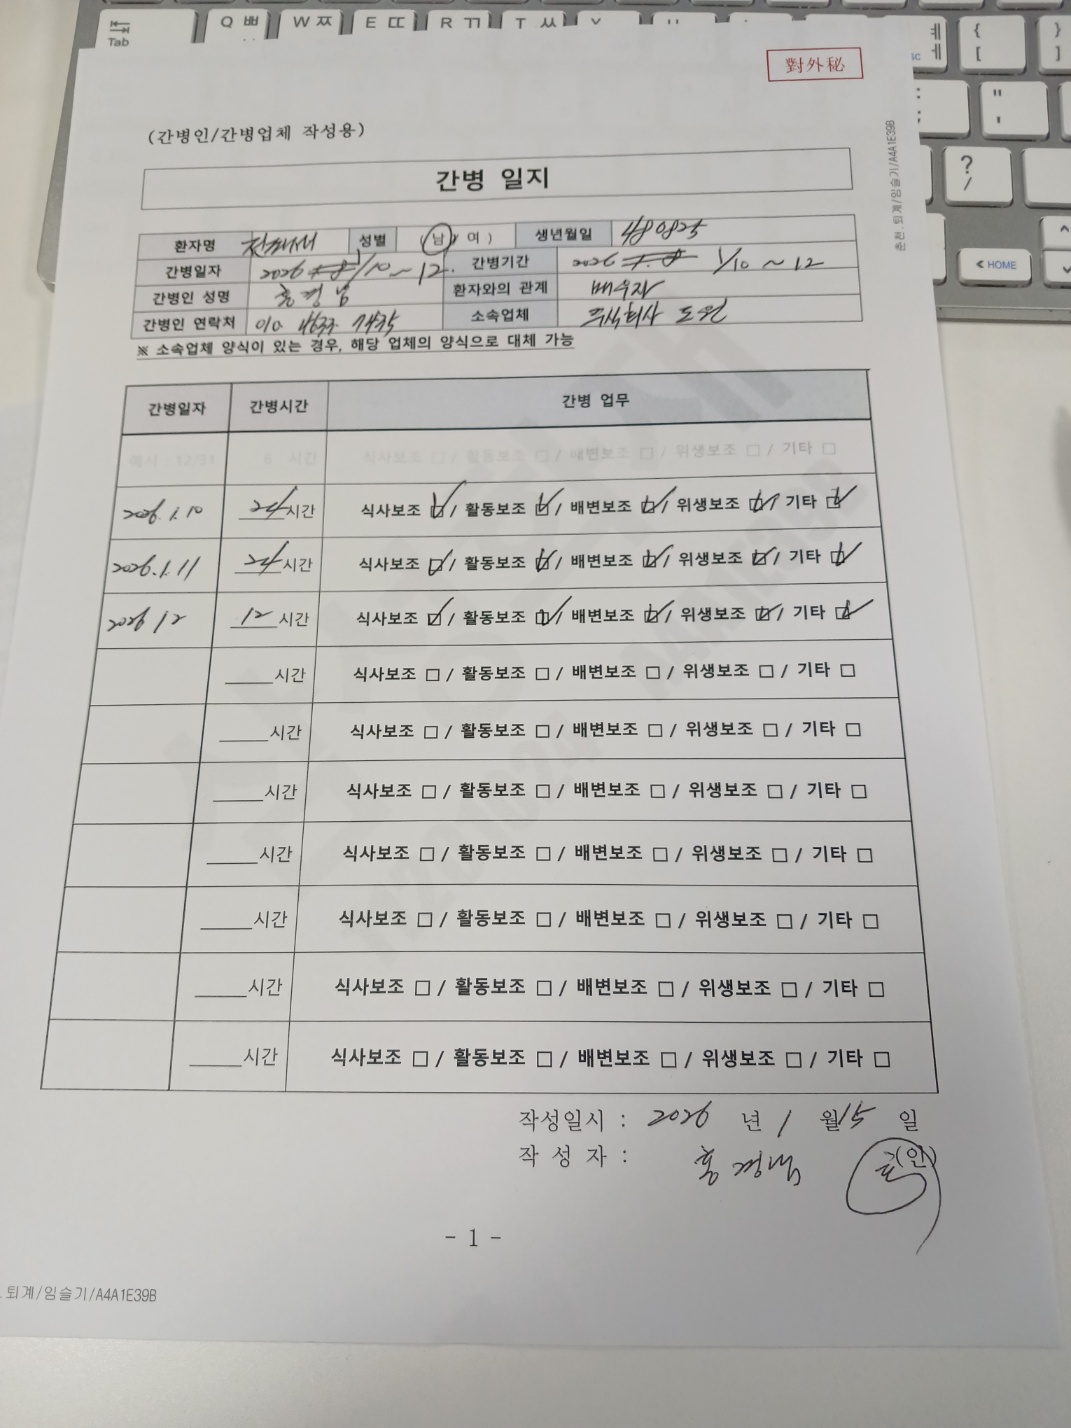 Tab Q ㅃ W ㅉ E ㄸ R ㄲ T ㅆ
{ [ } ]
" '
? /
< HOME
對外秘
춘천.퇴계/임슬기/A4A1E39B
(간병인/간병업체 작성용)
간병 일지
환자명 성별 (남/여) 생년월일 480825
간병일자 2026 1/10 ~ 12. 간병기간 2026 1/10 ~ 12
간병인 성명 홍경남 환자와의 관계 배우자
간병인 연락처 010 소속업체 주식회사 도원
※ 소속업체 양식이 있는 경우, 해당 업체의 양식으로 대체 가능
간병일자 간병시간 간병 업무
예시 : 12/31 6 시간 식사보조 □ / 활동보조 □ / 배변보조 □ / 위생보조 □ / 기타 □
2026. 1. 10 24 시간 식사보조 ☑ / 활동보조 ☑ / 배변보조 ☑ / 위생보조 ☑ / 기타 ☑
2026. 1. 11 24 시간 식사보조 ☑ / 활동보조 ☑ / 배변보조 ☑ / 위생보조 ☑ / 기타 ☑
2026 12 12 시간 식사보조 ☑ / 활동보조 ☑ / 배변보조 ☑ / 위생보조 ☑ / 기타 ☑
_____시간 식사보조 □ / 활동보조 □ / 배변보조 □ / 위생보조 □ / 기타 □
_____시간 식사보조 □ / 활동보조 □ / 배변보조 □ / 위생보조 □ / 기타 □
_____시간 식사보조 □ / 활동보조 □ / 배변보조 □ / 위생보조 □ / 기타 □
_____시간 식사보조 □ / 활동보조 □ / 배변보조 □ / 위생보조 □ / 기타 □
_____시간 식사보조 □ / 활동보조 □ / 배변보조 □ / 위생보조 □ / 기타 □
_____시간 식사보조 □ / 활동보조 □ / 배변보조 □ / 위생보조 □ / 기타 □
_____시간 식사보조 □ / 활동보조 □ / 배변보조 □ / 위생보조 □ / 기타 □
작성일시 : 2026 년 1 월 15 일
작 성 자 : 홍경남 (인)
- 1 -
.퇴계/임슬기/A4A1E39B